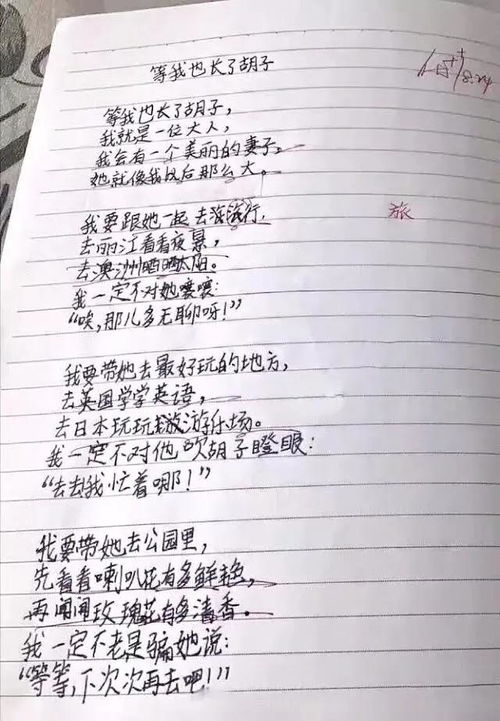 等我也长了胡子
等我也长了胡子，
我就是一位大人，
我会有一个美丽的妻子，
她就像我以后那么大。
我要跟她一起去旅行，
旅
去丽江看看夜景，
去澳洲晒晒太阳。
我一定不对她嚷嚷：
“唉，那儿多无聊呀！”
我要带她去最好玩的地方，
去英国学学英语，
去日本玩玩游乐场。
我一定不对他吹胡子瞪眼：
“去去我忙着哪！”
我要带她去公园里，
先看看喇叭花有多鲜艳，
再闻闻玫瑰花有多清香。
我一定不老是骗她说：
“等等，下次次再去吧！”